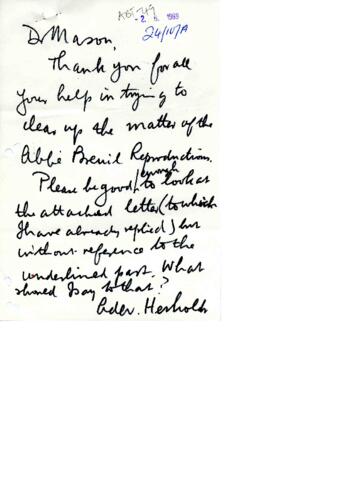 ABE 249
2 1989
24/10/A
Dr Mason,
Thank you for all
your help in trying to
clear up the matter of the
Abbé Breuil Reproductions.
Please be good enough to look at
the attached letter (to which
I have already replied) but
without reference to the
underlined part. What
should I say to that?